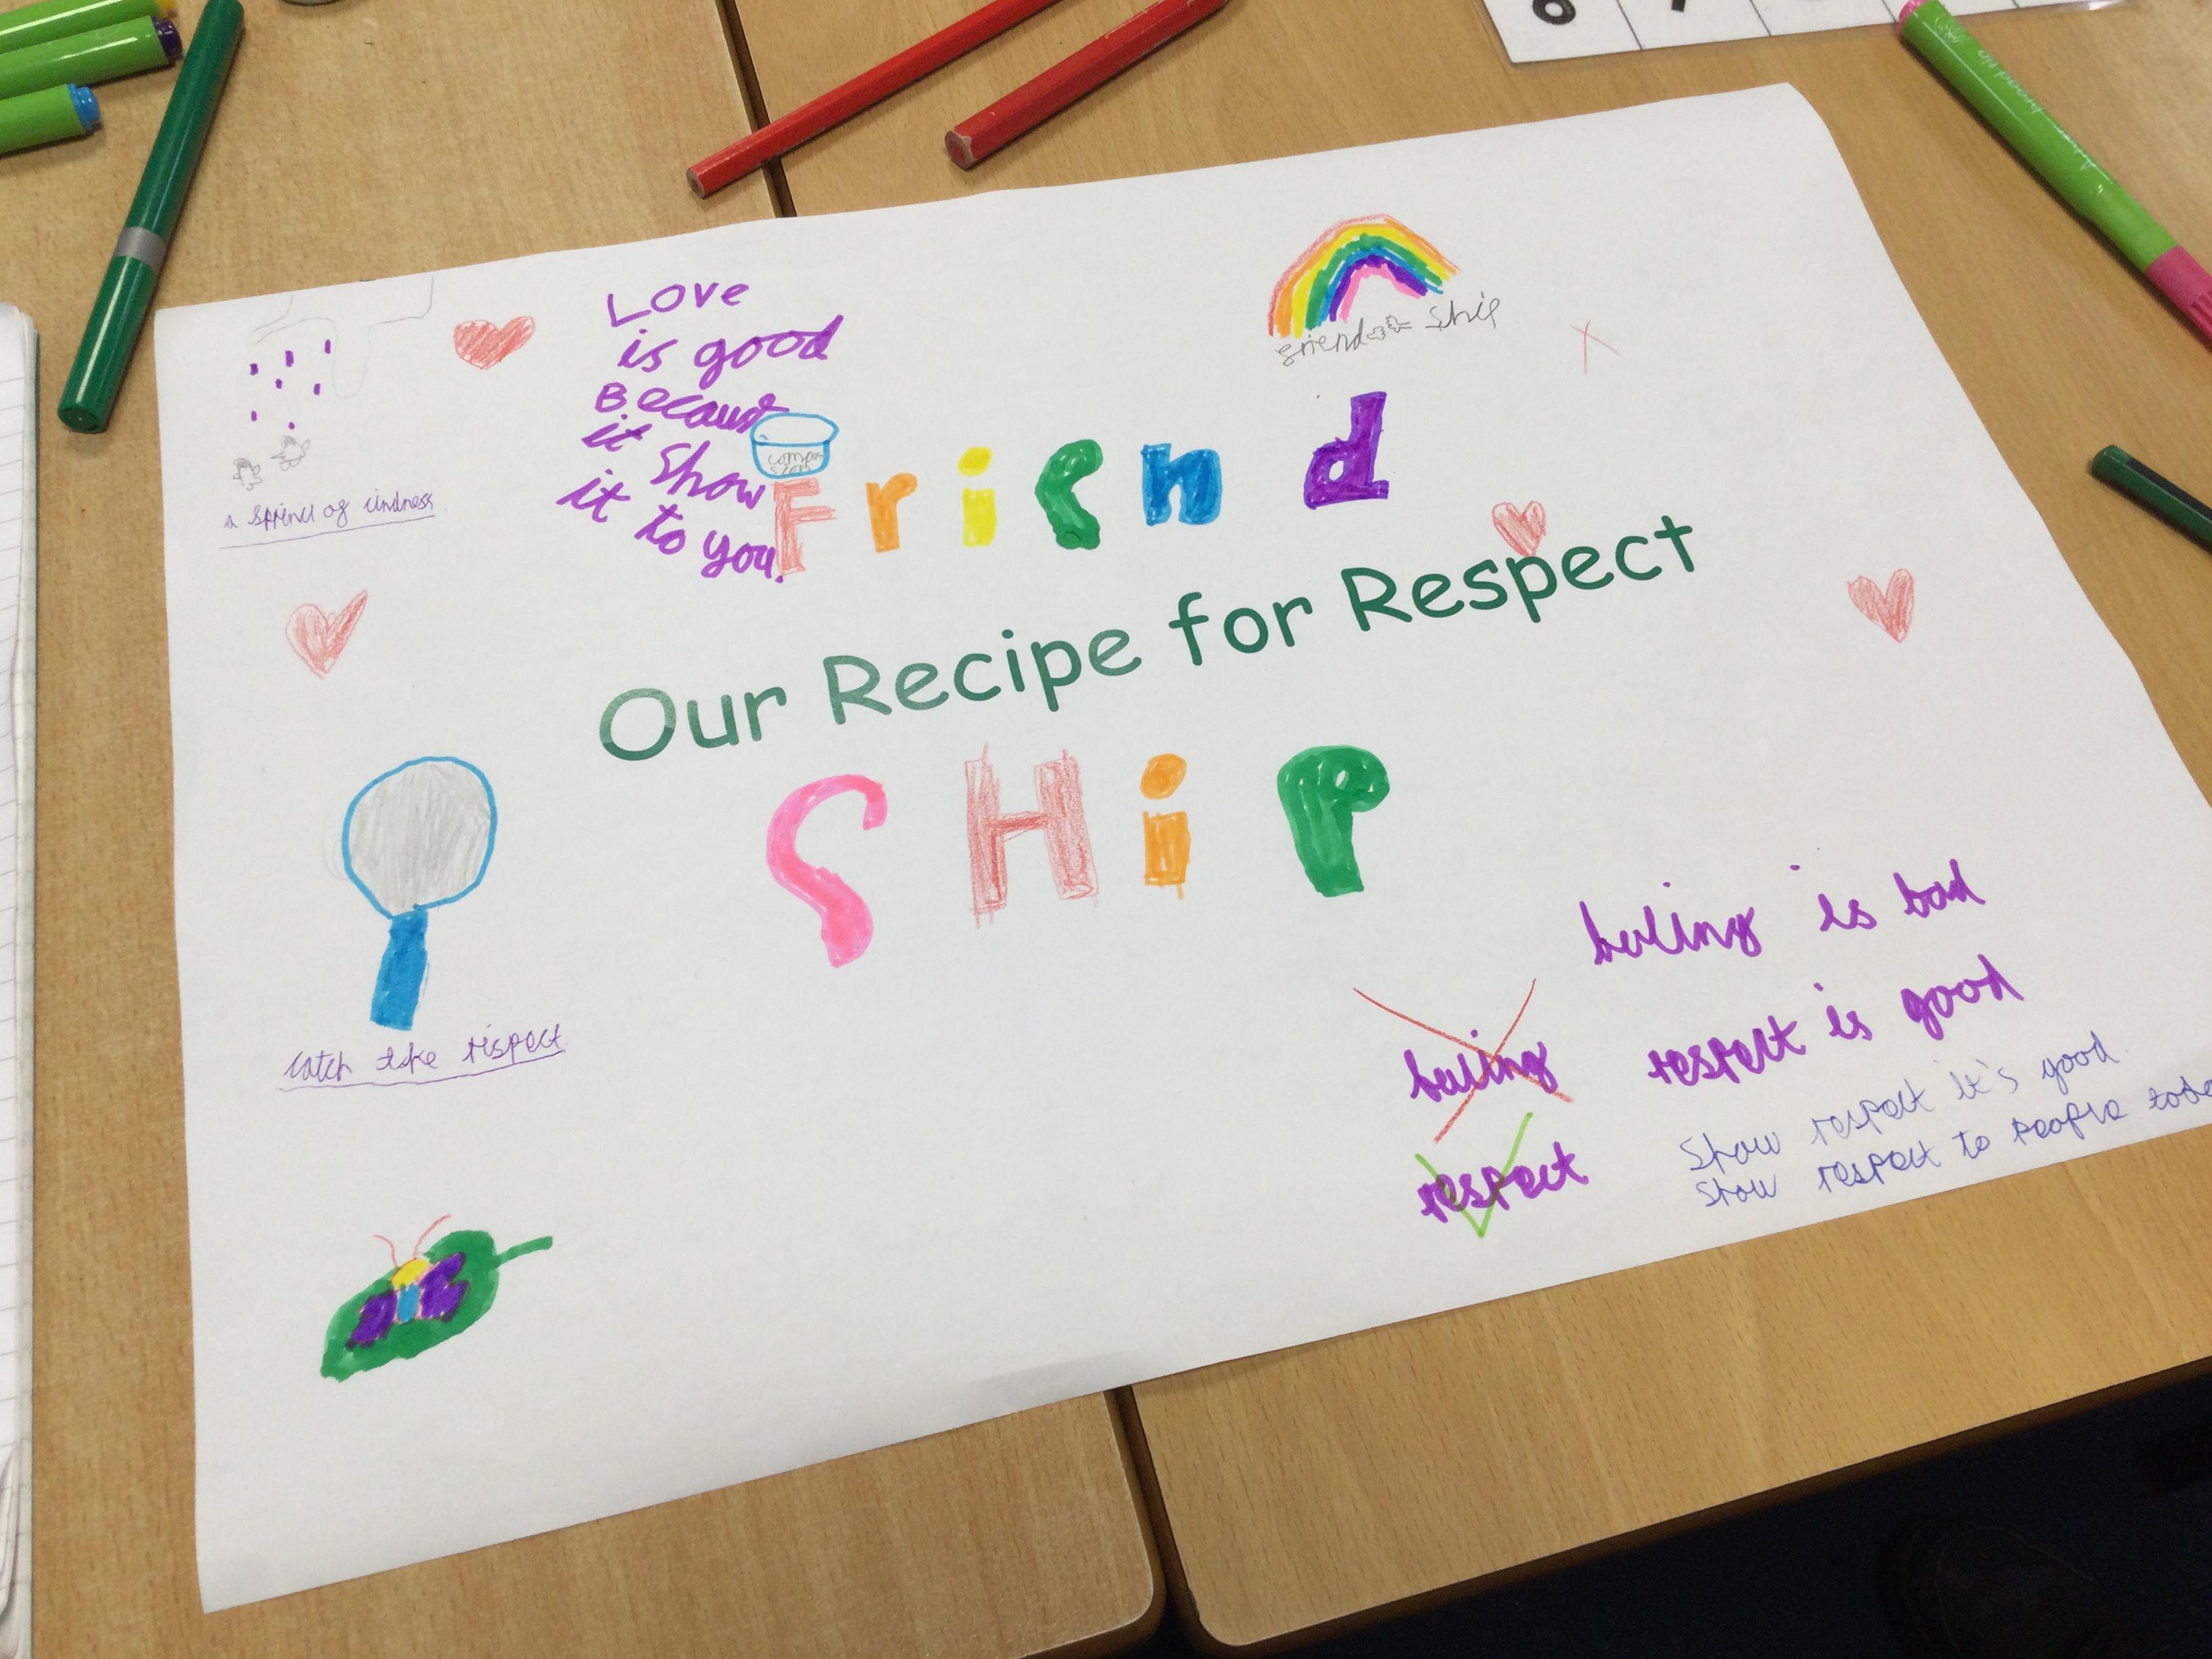 Love
is good
Becaus
it show
it to you.
compas
sion
friend ship
a sprincl of cindness
Friend
Our Recipe for Respect
SHiP
catch the respect
buling is bad
buling
respect is good
respect
Show respect it's good.
Show respect to people
broad tip
6